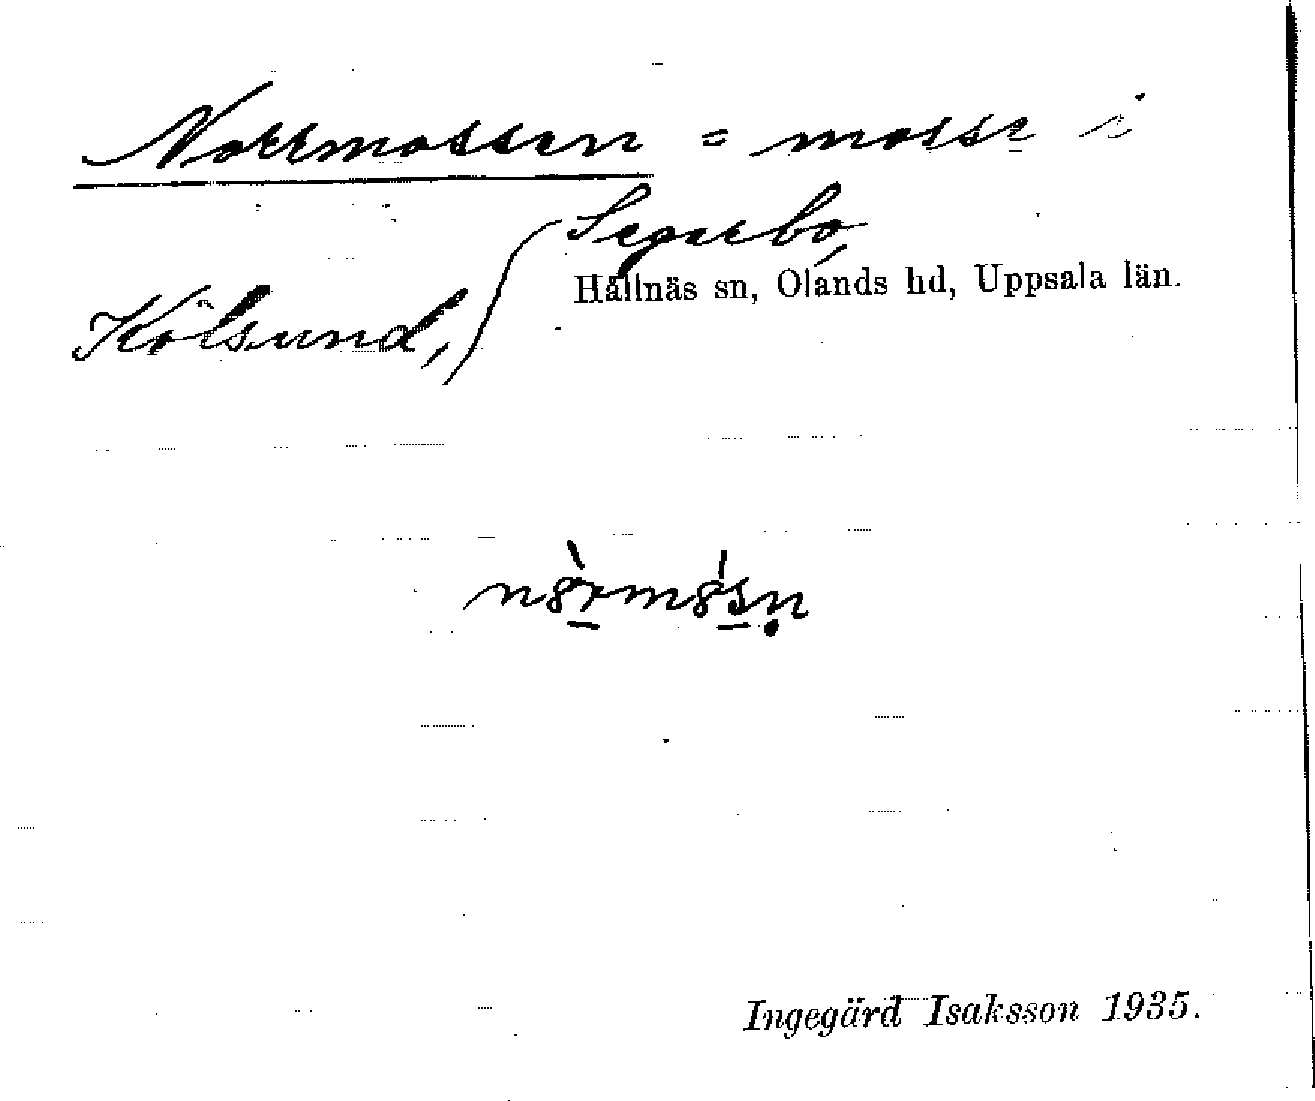 Norrmossen = mosse i
Segerbo,
Kölsund,
Hållnäs sn, Olands hd, Uppsala län.
Ingegärd Isaksson 1935.